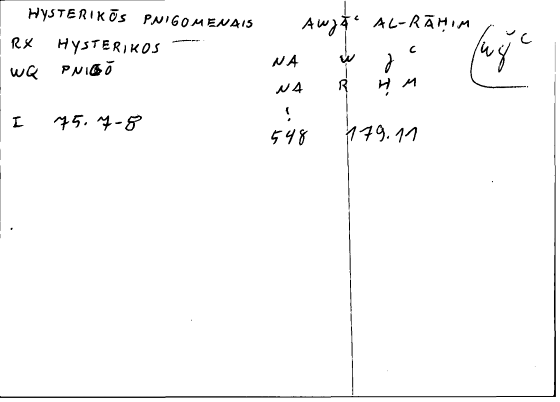 HYSTERIKŌS PNIGOMENAIS AWJĀᶜ AL-RĀḤIM
RX HYSTERIKOS
WQ PNIGŌ NA W J ᶜ
NA R Ḥ M
I 75. 7-8 548 179.11
wǧᶜ